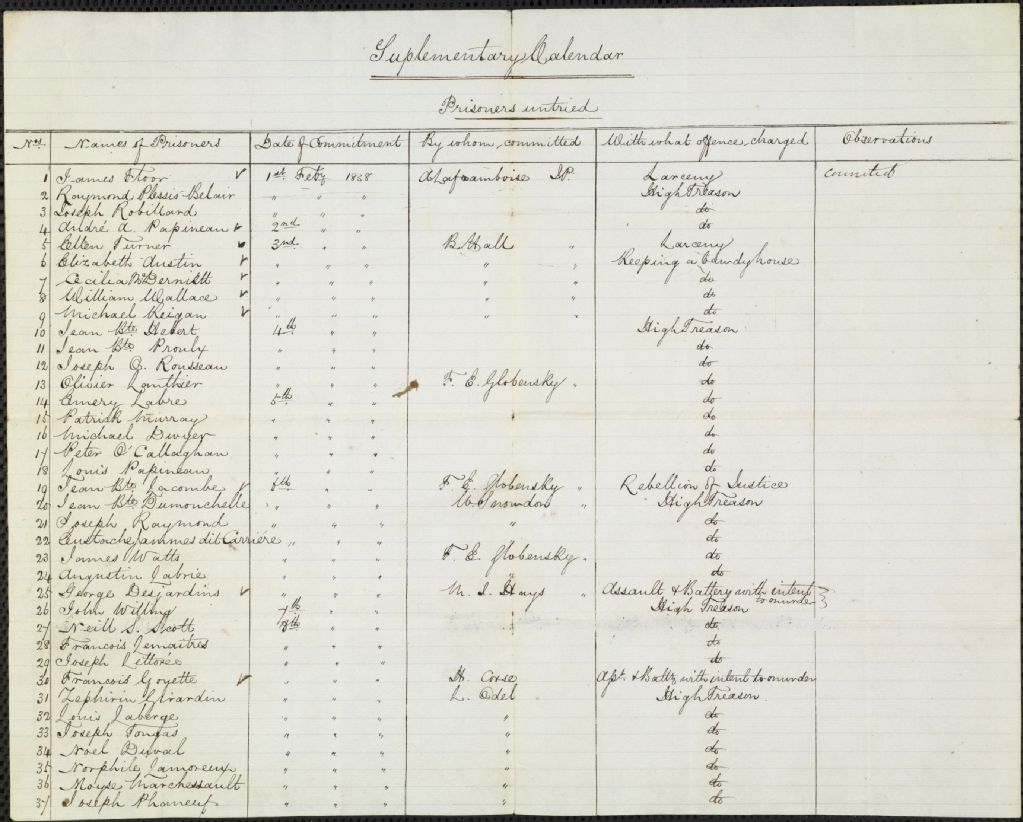 Suplementary Calendar
Prisoners untried
Nos. Names of Prisoners Date of Commitment By whom, committed With what offence, charged Observations
1 James Floor ✓ 1st Feby 1838 A Laframboise J.P. Larceny
2 Raymond Plessis-Belair " " " High Treason
3 Joseph Robillard " " " do
4 André A. Papineau ✓ 2nd " " do
5 Ellen Turner ✓ 3rd " " B. Hall " Larceny
6 Elizabeth Austin ✓ " " " " " Keeping a bawdy house
7 Cecilia McDermitt ✓ " " " " " do
8 William Wallace ✓ " " " " " do
9 Michael Reigan ✓ " " " " " do
10 Jean Bte Hebert 4th " " High Treason
11 Jean Bte Proulx " " " do
12 Joseph O. Rousseau " " " do
13 Olivier Lanthier " " " F. E. Globensky " do
14 Emery Labre 5th " " do
15 Patrick Murray " " " do
16 Michael Dwyer " " " do
17 Peter O'Callaghan " " " do
18 Louis Papineau " " " do
19 Jean Bte Lacombe ✓ " " F. E. Globensky " Rebellion of Justice
20 Jean Bte Dumouchelle " " " W. Snowdon " High Treason
21 Joseph Raymond " " " " do
22 Eustache Lammes dit Carriére " " " do
23 James Watts " " " F. E. Globensky " do
24 Augustin Labrie " " " " do
25 George Desjardins ✓ " " " M. I. Hays " Assault & Battery with intent to murder
26 John Willing 7th " " High Treason
27 Neill S. Scott 8th " " do
28 Francois Lemaitres " " " do
29 Joseph Lettorée " " " do
30 Francois Goyette ✓ " " " H. Corse with intent to murder
31 Zephirin Girardin " " " L. Odel High Treason
32 Louis Laberge " " " " do
33 Joseph Tongas " " " " do
34 Noel Duval " " " " do
35 Norphile Lamoreux " " " " do
36 Moyse Marchessault " " " " do
37 Joseph Phaneuf " " " " do